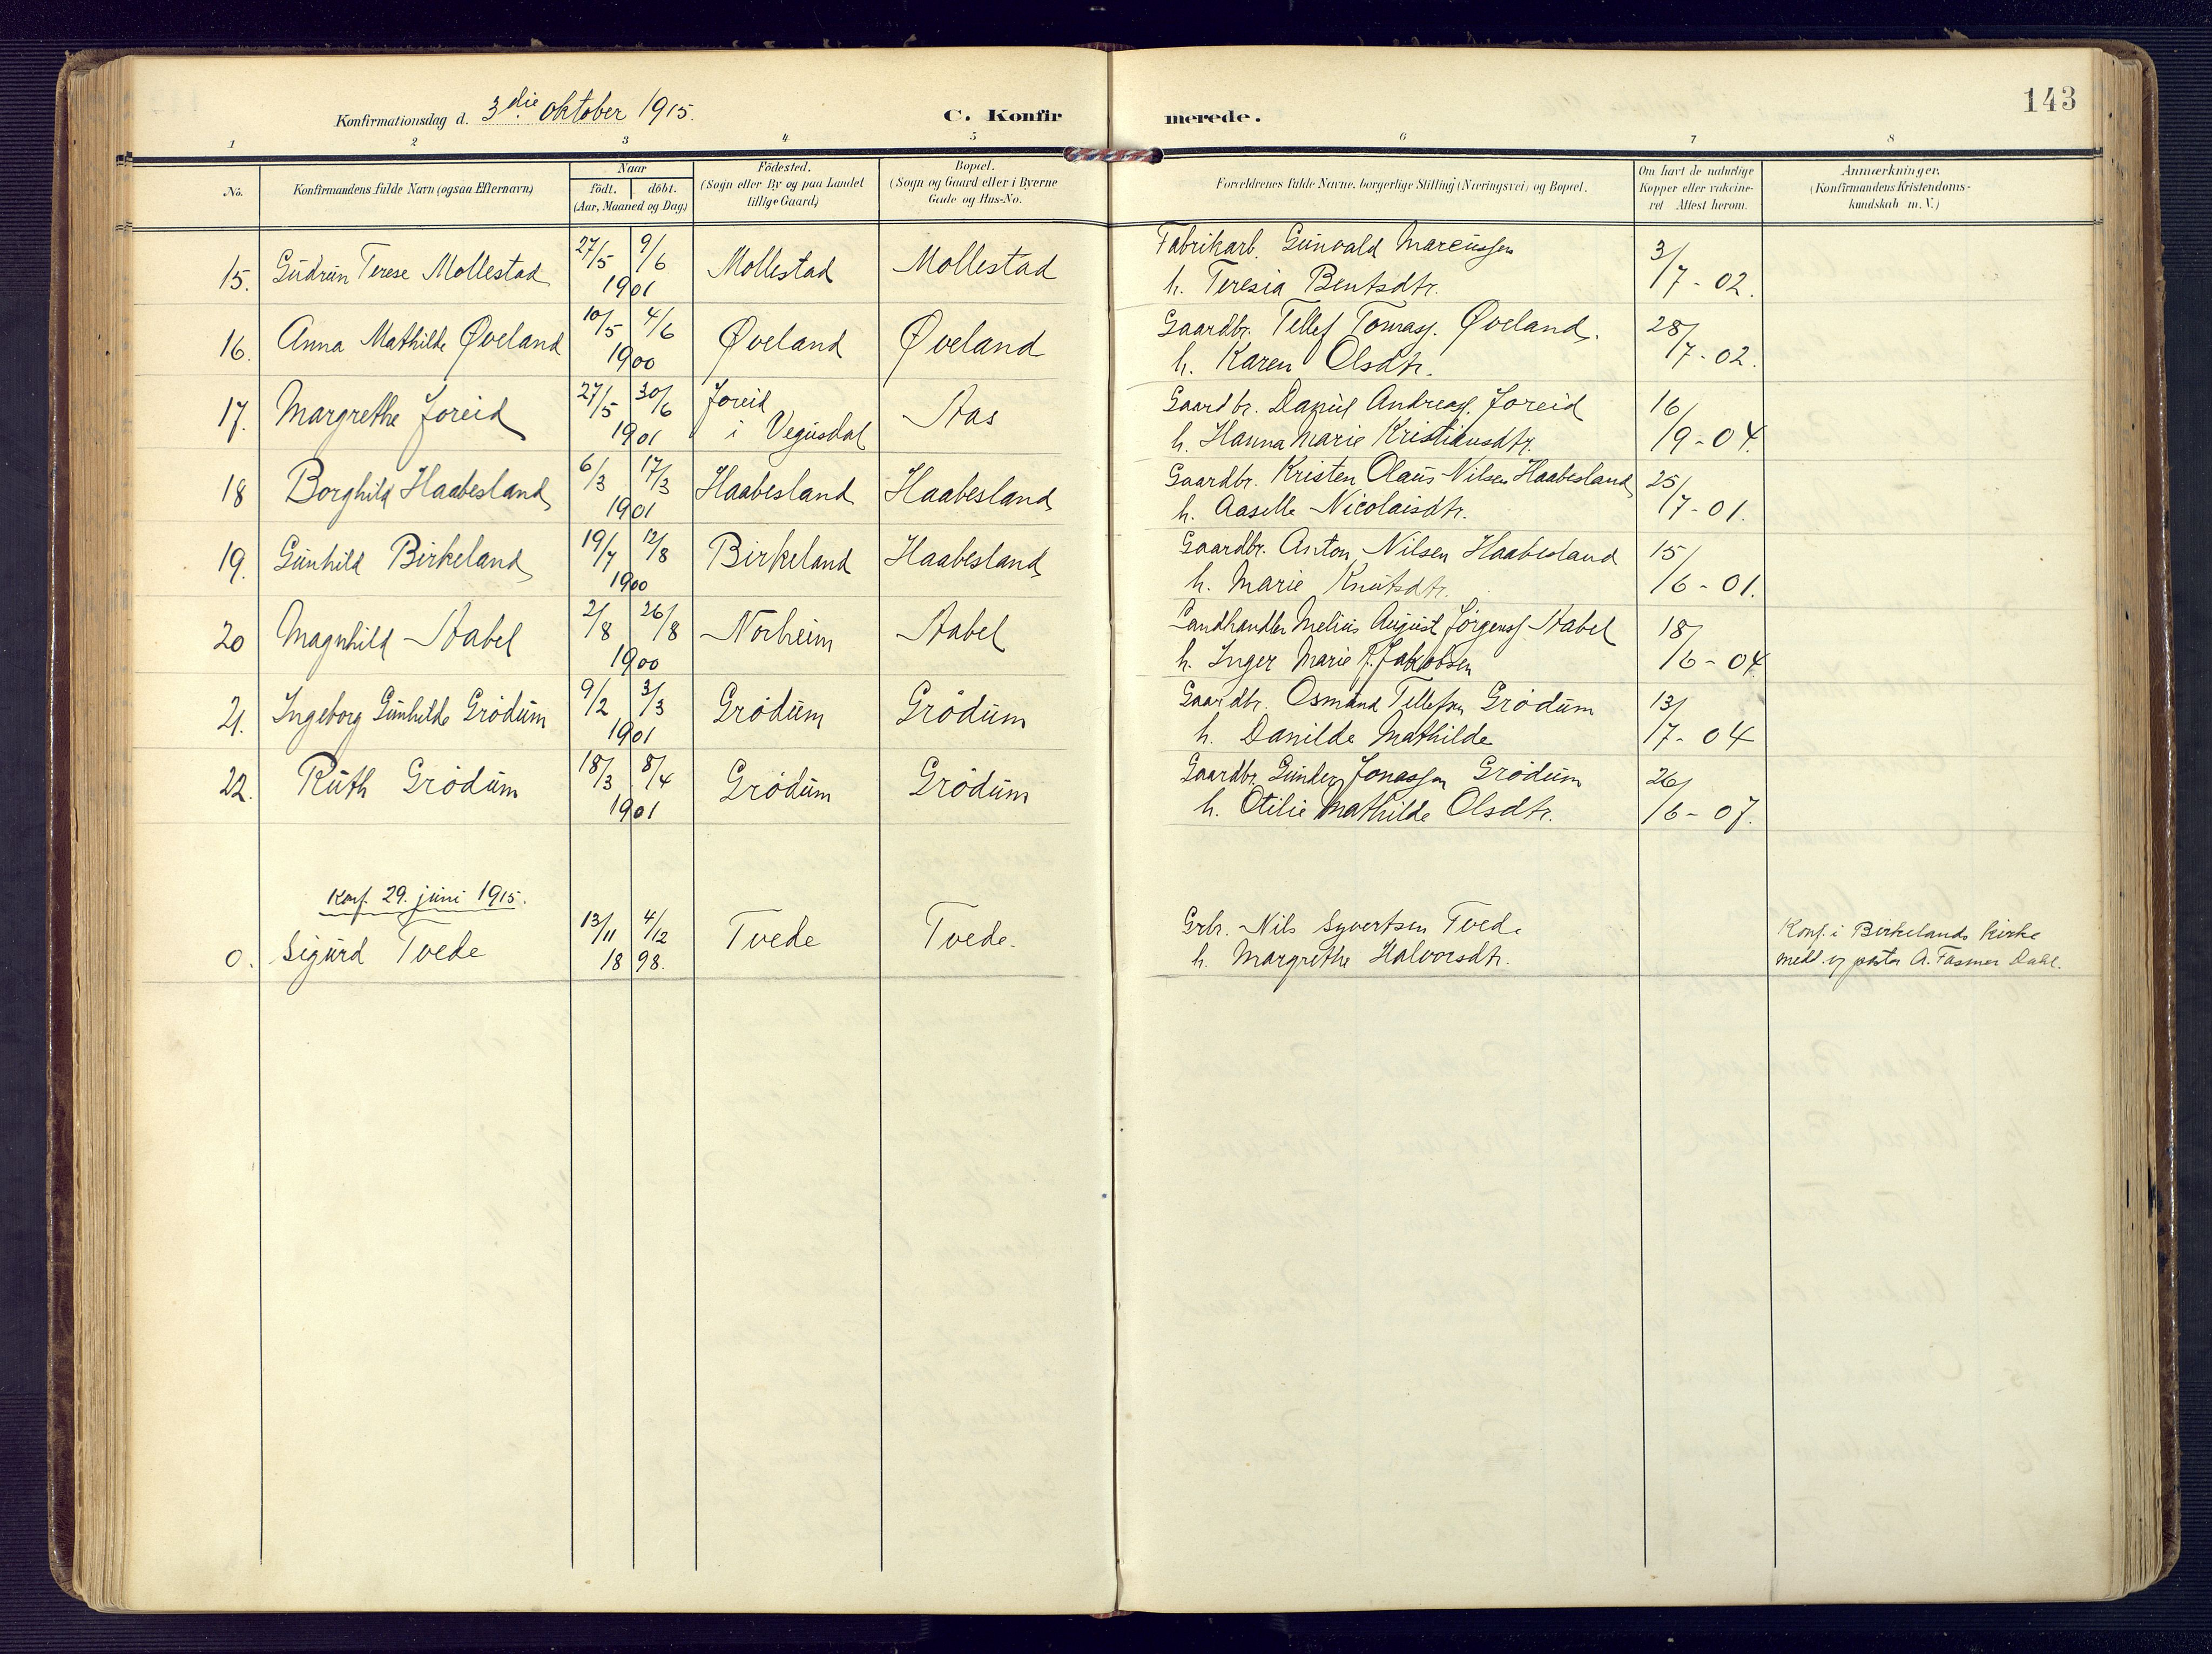 143
Konfirmationsdag d. 3die oktober 1915.
C. Konfirmerede.
1 2 3 4 5 6 7 8
No. Konfirmandens fulde Navn (ogsaa Efternavn) Naar födt. döbt. (Aar, Maaned og Dag) Födested. (Sogn eller By og paa Landet tillige Gaard) Bopæl. (Sogn og Gaard eller i Byerne Gade og Hus-No. Forældrenes fulde Navne, borgerlige Stilling (Næringsvei) og Bopæl. Om havt de naturlige Kopper eller vakcineret Attest herom. Anmærkninger. (Konfirmandens Kristendomskundskab m. V.)
15. Gudrun Terese Mollestad 27/5 9/6 1901 Mollestad Mollestad Fabrikarb. Gunvald Marcussen
h. Teresia Bentsdtr. 3/7-02.
16. Anna Mathilde Øveland 10/5 4/6 1900 Øveland Øveland Gaardbr. Tellef Tomass. Øveland.
h. Karen Olsdtr. 28/7-02.
17. Margrethe Foreid 27/5 30/6 1901 Foreid i Vegusdal Aas Gaardbr. Daniel Andreass. Foreid
h. Hanna Marie Kristiansdtr. 16/9-04.
18 Borghild Haabesland 6/3 17/3 1901 Haabesland Haabesland Gaardbr. Kristen Olaus Nilsen Haabesland
h. Aaselle Nicolaisdtr. 25/7-01.
19. Gunhild Birkeland 19/7 12/8 1900 Birkeland Haabesland Gaardbr. Anton Nilsen Haabesland
h. Marie Knutsdtr. 15/6-01.
20 Magnhild Stabel 2/8 26/8 1900 Norheim Stabel Landhandler Melius August Jørgenss. Stabel
h. Inger Marie Jakobsen 18/6-04
21. Ingeborg Gunhilde Grödum 9/2 3/3 1901 Grödum Grödum Gaardbr. Osmund Tellefsen Grödum
h. Danilde Mathilde 13/7-04
22. Ruth Grödum 18/3 8/4 1901 Grödum Grödum Gaardbr. Gunder Jonassen Grödum
h. Otilie Mathilde Olsdtr. 26/6-07.
Konf. 29. juni 1915.
0. Sigurd Tvede 13/11 4/12 1898. Tvede Tvede. Grbr. Nils Syvertsen Tvede
h. Margrethe Halvorsdtr. Konf. i Birkelands kirke
medd. af pastor A. Fasmer Dahl.